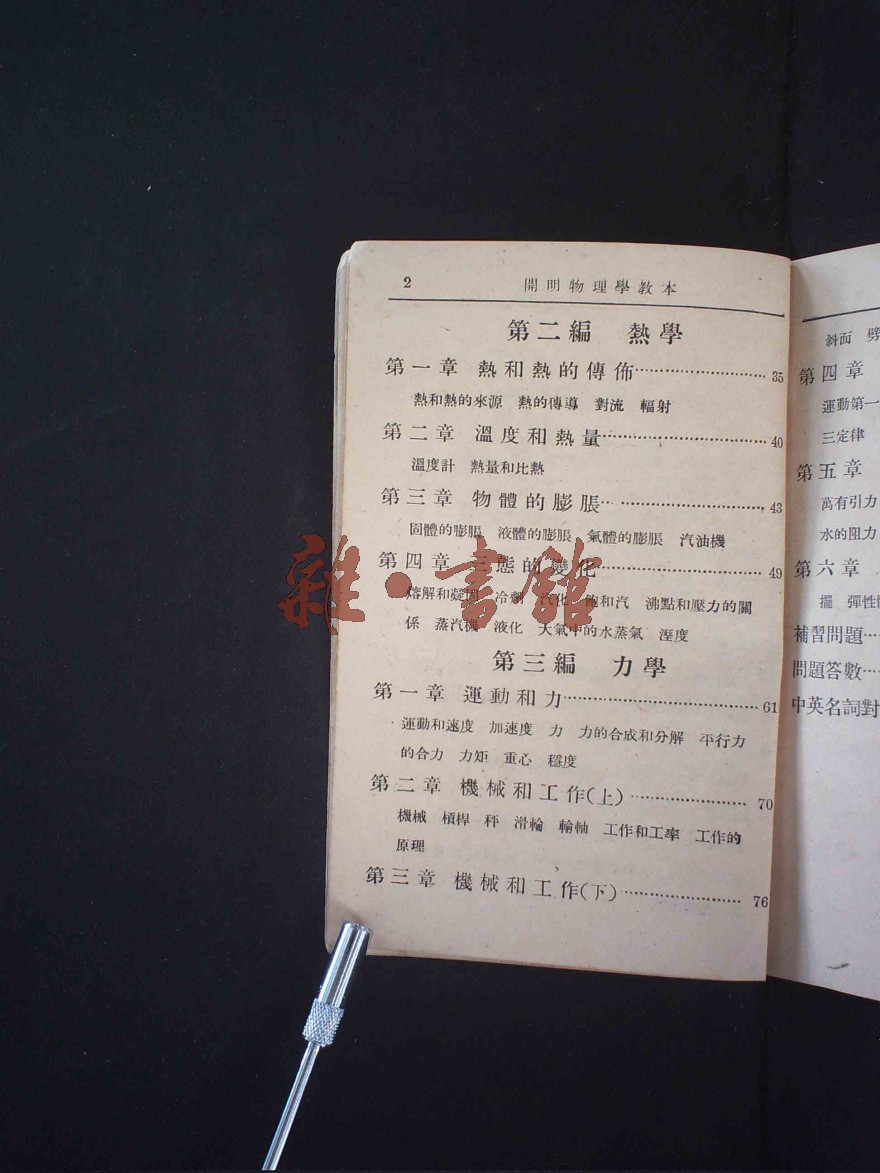 2 開明物理學教本
第二編 熱學
第一章 熱和熱的傳佈 35
熱和熱的來源 熱的傳導 對流 輻射
第二章 溫度和熱量 40
溫度計 熱量和比熱
第三章 物體的膨脹 43
固體的膨脹 液體的膨脹 氣體的膨脹 汽油機
第四章 三態的變化 49
熔解和凝固 冷劑 汽化 飽和汽 沸點和壓力的關
係 蒸汽機 液化 大氣中的水蒸氣 溼度
第三編 力學
第一章 運動和力 61
運動和速度 加速度 力 力的合成和分解 平行力
的合力 力矩 重心 穩度
第二章 機械和工作(上) 70
機械 槓桿 秤 滑輪 輪軸 工作和工率 工作的
原理
第三章 機械和工作(下) 76
斜面
第四章
運動第一
三定律
第五章
萬有引力
水的阻力
第六章
擺 彈性
補習問題
問題答數
中英名詞對
雜·書館